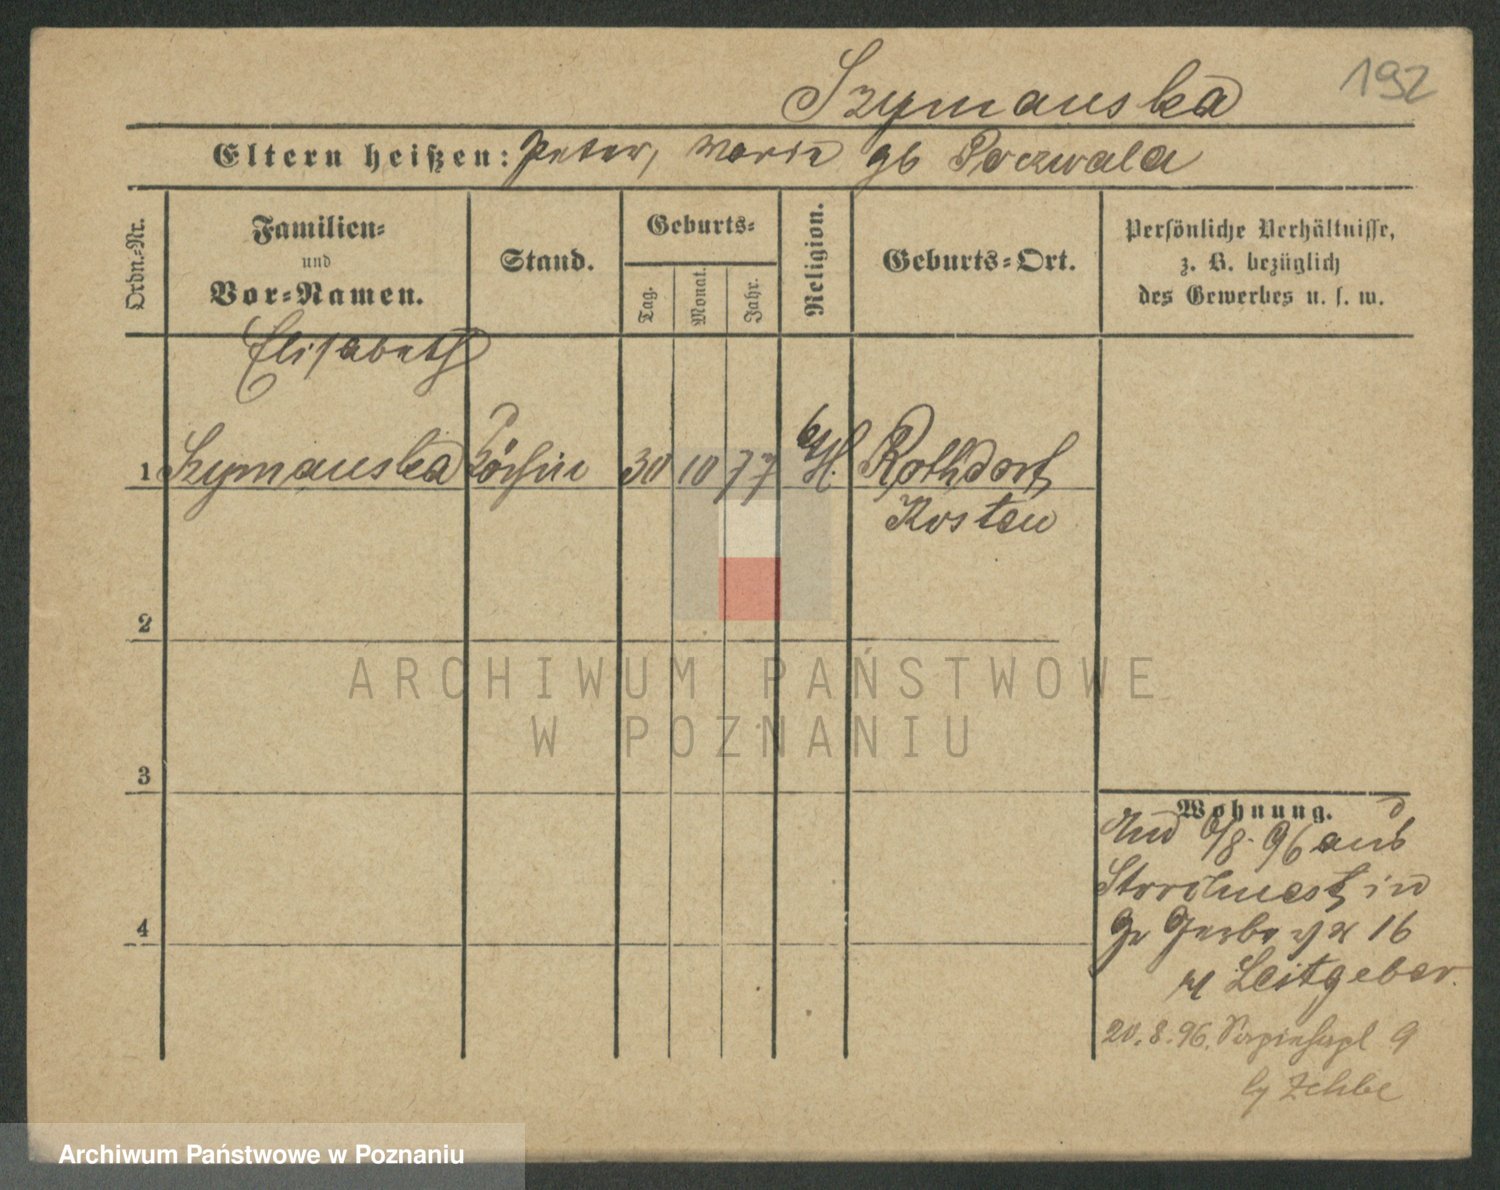 Szymanska 192
Eltern heißen: Peter, Marie gb Poczwala
Ordn.-Nr.
Familien-
und
Vor-Namen.
Stand.
Geburts-
Tag.
Monat.
Jahr.
Religion.
Geburts-Ort.
Persönliche Verhältnisse,
z. B. bezüglich
des Gewerbes u. s. w.
Elisabeth
1 Szymanska Köchin 30 10 77 Rothdorf
Kosten
2
3
4
Wohnung.
6/8. 96 aus
in
Gr Gerber 16
Leitgeber.
20.8.96. 9
by Zehbe
ARCHIWUM PAŃSTWOWE
W POZNANIU
Archiwum Państwowe w Poznaniu